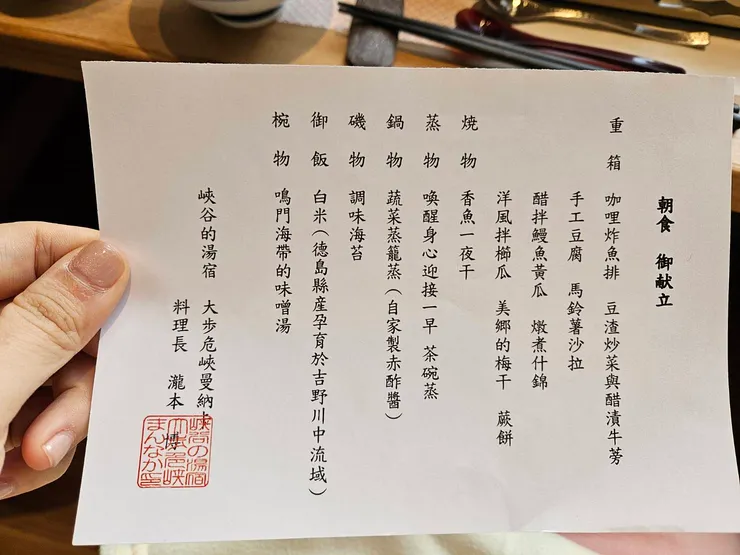 朝食 御献立
重箱 咖哩炸魚排 豆渣炒菜與醋漬牛蒡
手工豆腐 馬鈴薯沙拉
醋拌鰻魚黃瓜 燉煮什錦
洋風拌櫛瓜 美郷的梅干 蕨餅
焼物 香魚一夜干
蒸物 喚醒身心迎接一早 茶碗蒸
鍋物 蔬菜蒸籠蒸(自家製赤酢醬)
磯物 調味海苔
御飯 白米(德島縣産孕育於吉野川中流域)
椀物 鳴門海帶的味噌湯
峽谷的湯宿 大步危峽曼納卡
料理長 瀧本 博
峡谷の湯宿
大歩危峡
まんなか